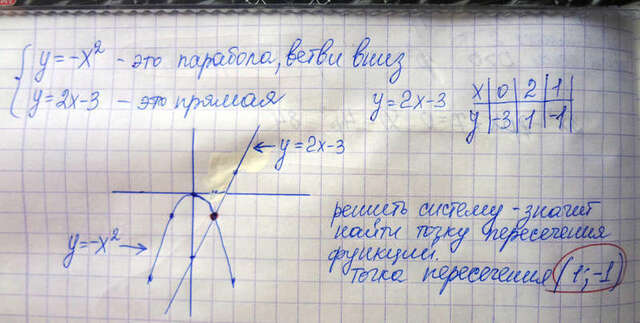 y=-x² - это парабола, ветви вниз
y=2x-3 - это прямая
y=2x-3
x|0|2|1
y|-3|1|-1
y=2x-3
y=-x²
решить систему - значит
найти точку пересечения
функций.
точка пересечения (1;-1)